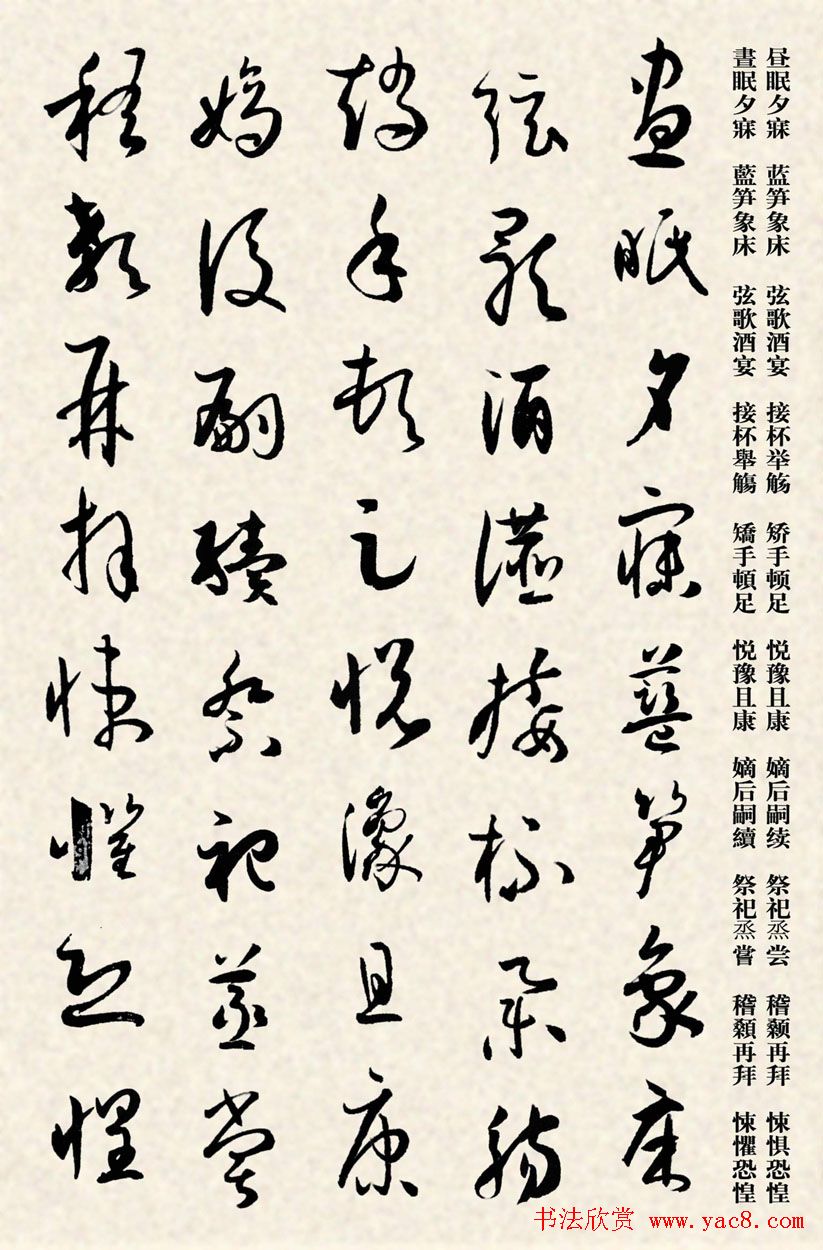 昼眠夕寐 蓝笋象床 弦歌酒宴 接杯举觞 矫手顿足 悦豫且康 嫡后嗣续 祭祀烝尝 稽颡再拜 悚惧恐惶
晝眠夕寐 藍笋象床 弦歌酒宴 接杯舉觴 矯手頓足 悦豫且康 嫡后嗣續 祭祀烝嘗 稽顙再拜 悚懼恐惶
晝眠夕寐藍笋象床
弦歌酒讌接杯舉觴
矯手頓足悦豫且康
嫡後嗣續祭祀蒸嘗
稽顙再拜悚懼恐惶
书法欣赏 www.yac8.com